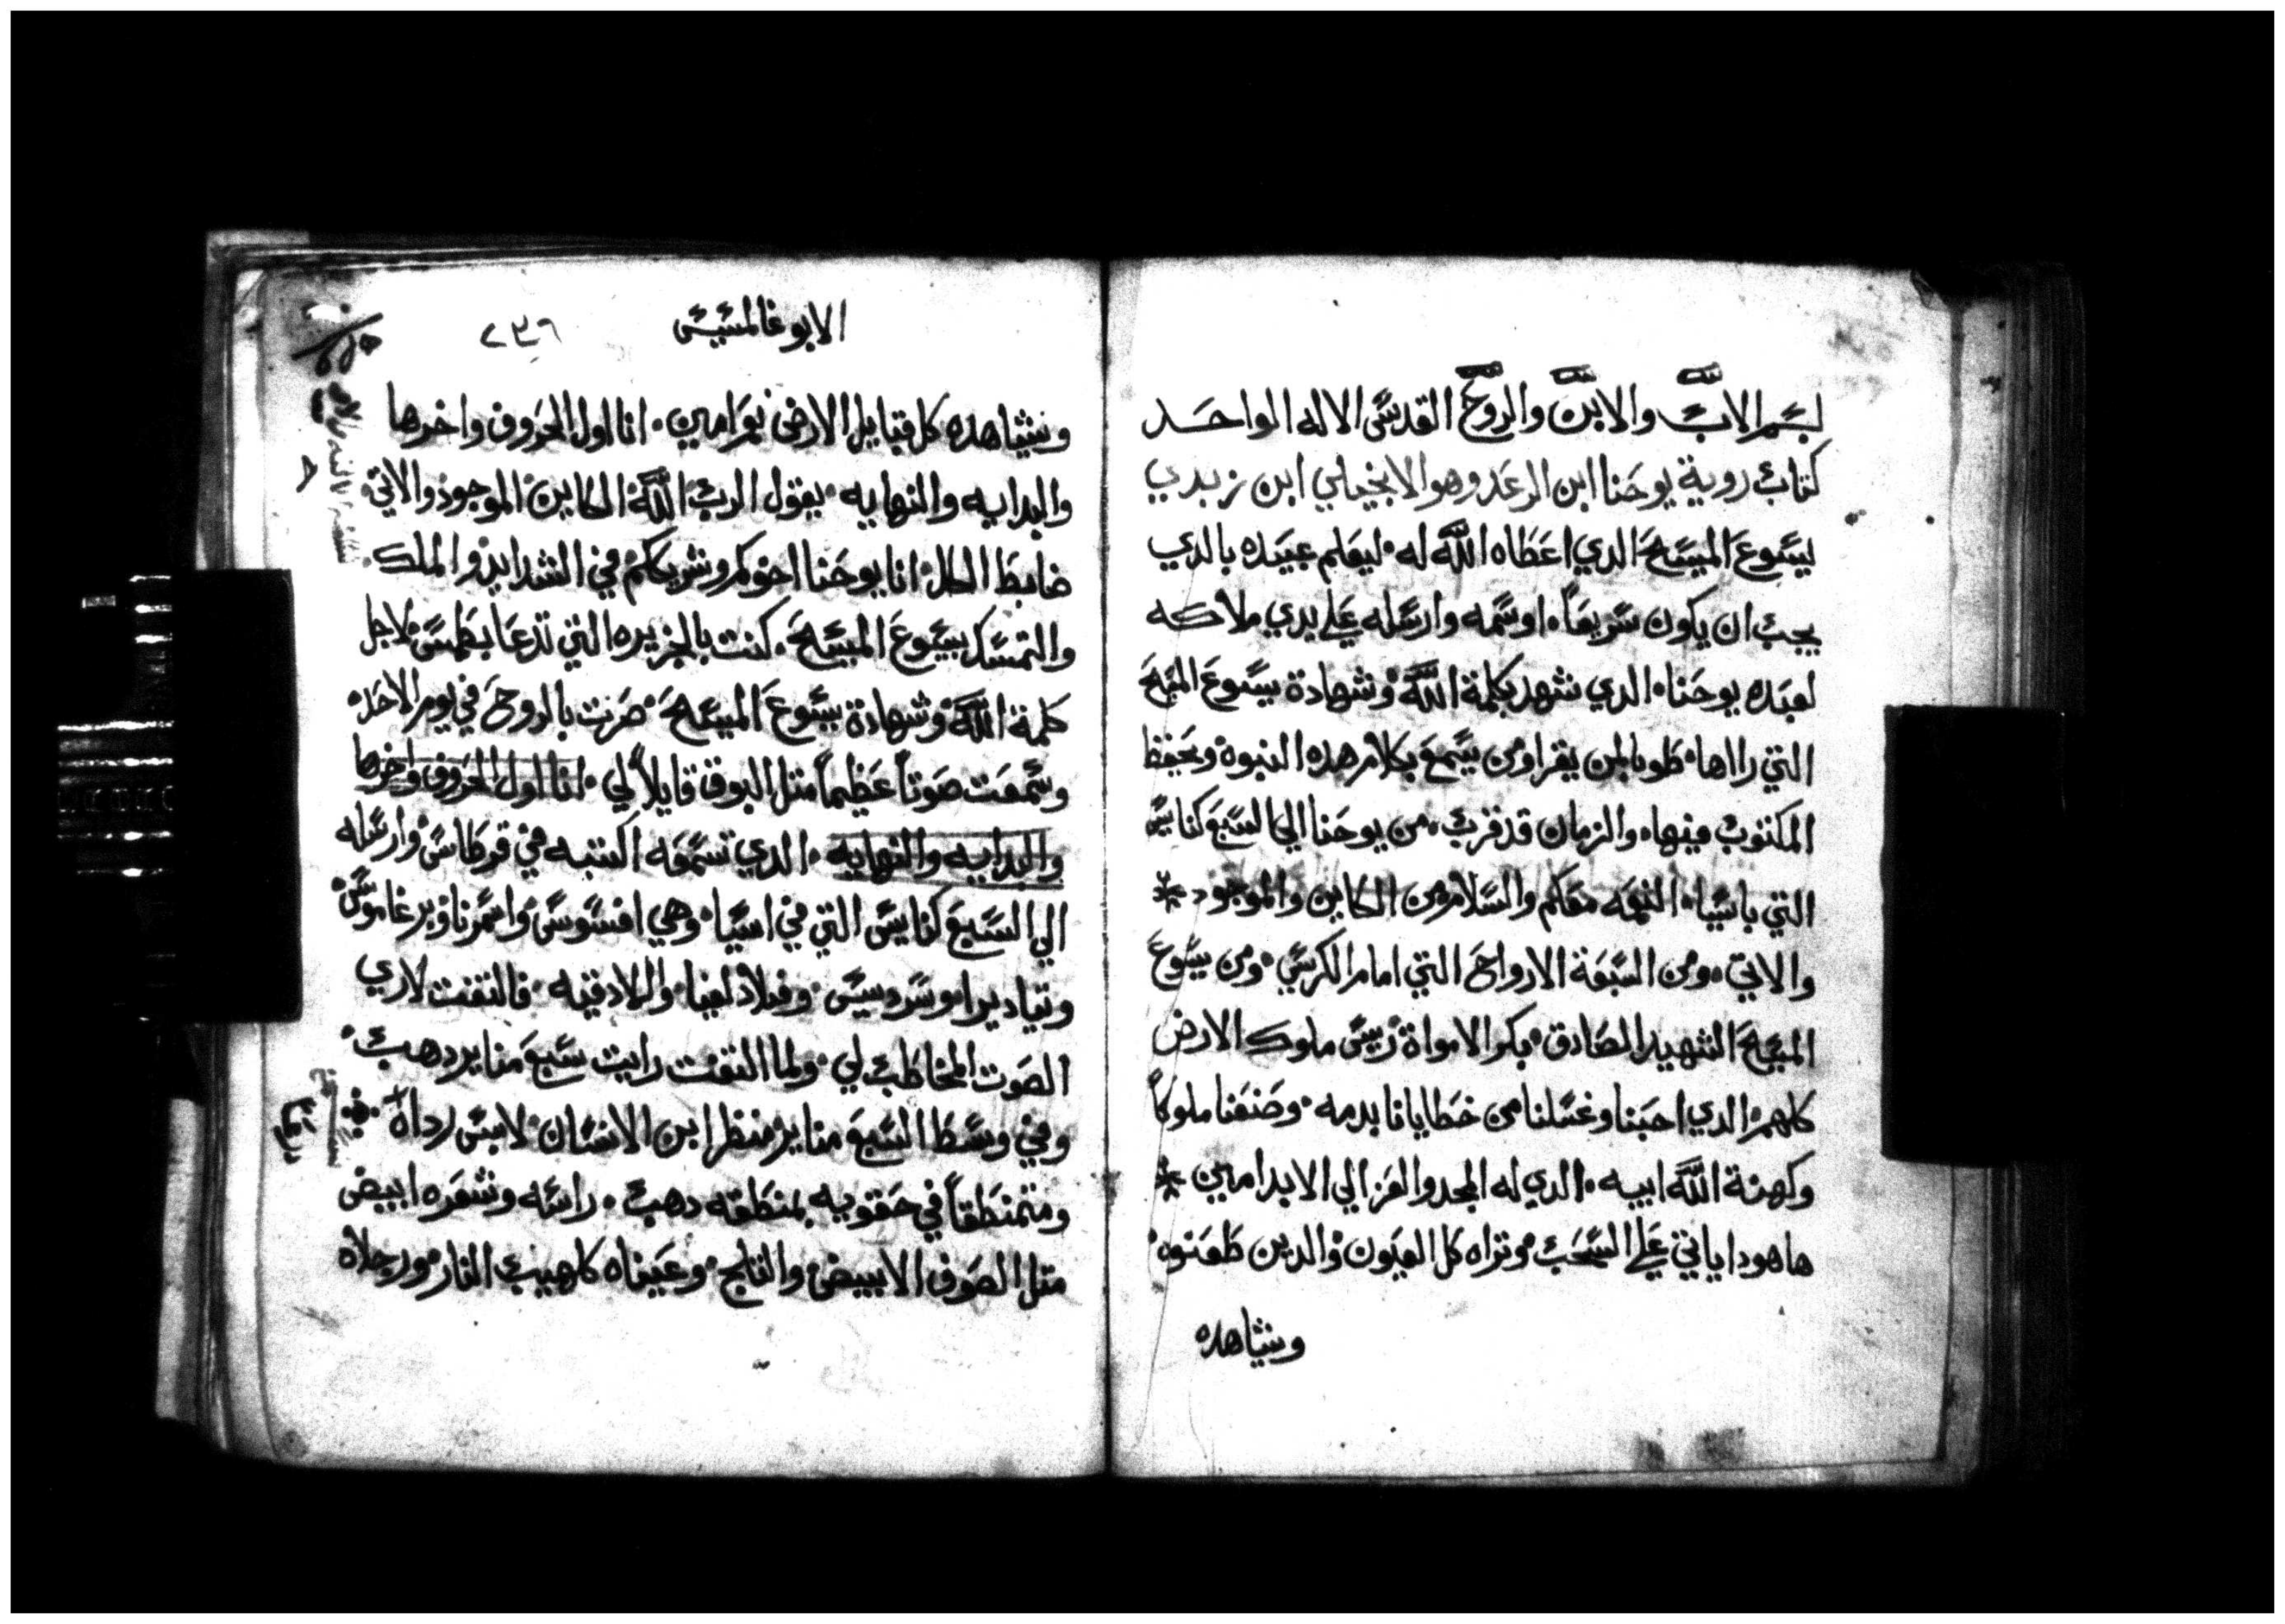 بسم الاب والابن والروح القدس الاله الواحد
كتاب روية يوحنا ابن الرعد وهو الانجيلي ابن زبدي
ليسوع المسيح الدي اعطاه الله له ليعلم عبيده بالدي
يجب ان يكون سريعاً اوسمه وارسله علي يدي ملاكه
لعبده يوحنا الدي شهد بكلمة الله وشهادة يسوع المسيح
التي رااها طوبا لمن يقرا ومن يسمع بكلام هده النبوة ويحفظ
المكتوب فيها والزمان قد قرب من يوحنا الي السبع كنايس
التي باسيا النعمه معكم والسلام من الكاين والموجود *
والاتي ومن السبعة الارواح التي امام الكرسي ومن يسوع
المسيح الشهيد الصادق بكر الامواة ريس ملوك الارض
كلهم الدي احبنا وغسلنا من خطايانا بدمه وصنعنا ملوكاً
وكهنة الله ابيه الدي له المجد والعز الي الابد امين *
هاهودا ياتي علي السحب وتراه كل العيون والدين طعنوه
وتشاهده
الابوغالمسيس ٢٣٩
وتشاهده كل قبايل الارض نعم امين انا اول الحروف واخرها
والبدايه والنهايه يقول الرب الله الكاين الموجود والاتي
ضابط الكل انا يوحنا اخوكم وشريككم في الشدايد والملك
والتمسك بيسوع المسيح كنت بالجزيره التي تدعا بطمس لاجل
كلمة الله وشهادة يسوع المسيح صرت بالروح في يوم الاحد
وسمعت صوتاً عظيماً متل البوق قايلاً لي انا اول الحروف واخرها
والبدايه والنهايه الدي تسمعه اكتبه في قرطاس وارسله
الي السبع كنايس التي في اسيا وهي افسوس واسمرنا وبرغاموس
وتياديرا وسرديس وفيلادلفيا والادقيه فالتفت لاري
الصوت المخاطب لي ولما التفت رايت سبع مناير دهب
وفي وسط السبع مناير منظر ابن الانسان لابس رداه
ومتمنطقاً في حقويه بمنطقه دهب راسه وشعره ابيض
متل الصوف الابيض والتلج وعيناه كلهيب النار ورجلاه